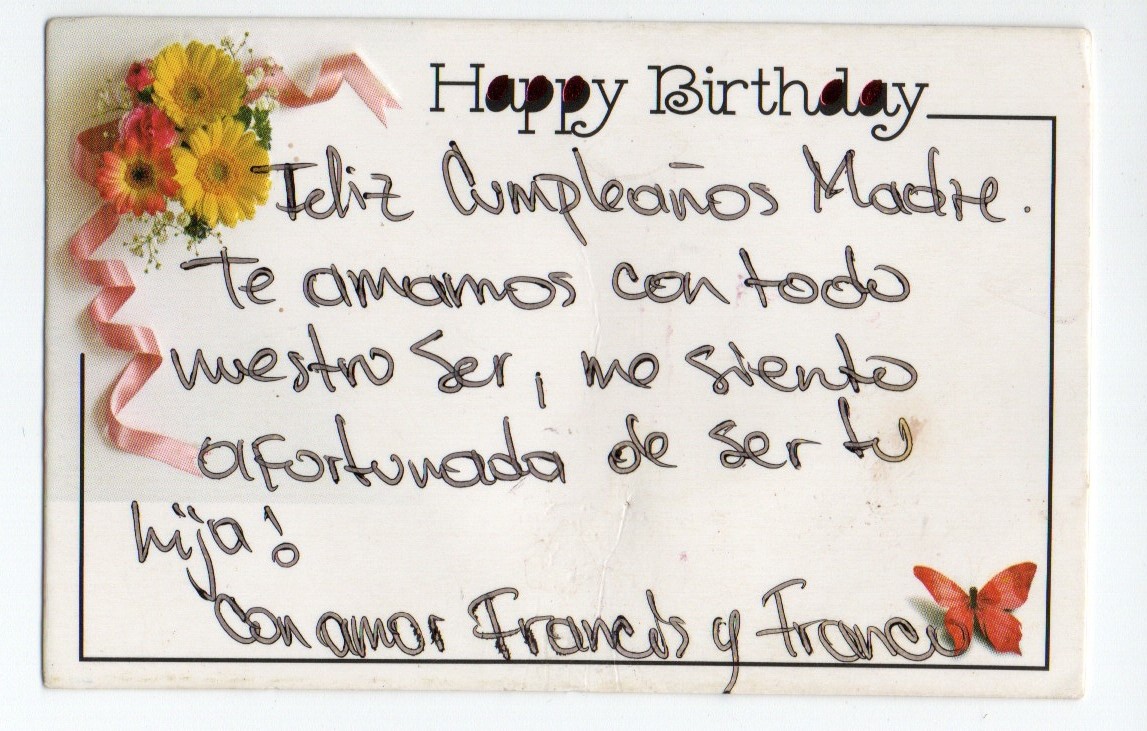 Happy Birthday
Feliz Cumpleaños Madre.
Te amamos con todo
nuestro ser, ¡ me siento
afortunada de ser tu
hija!
Con amor Francis y Franco